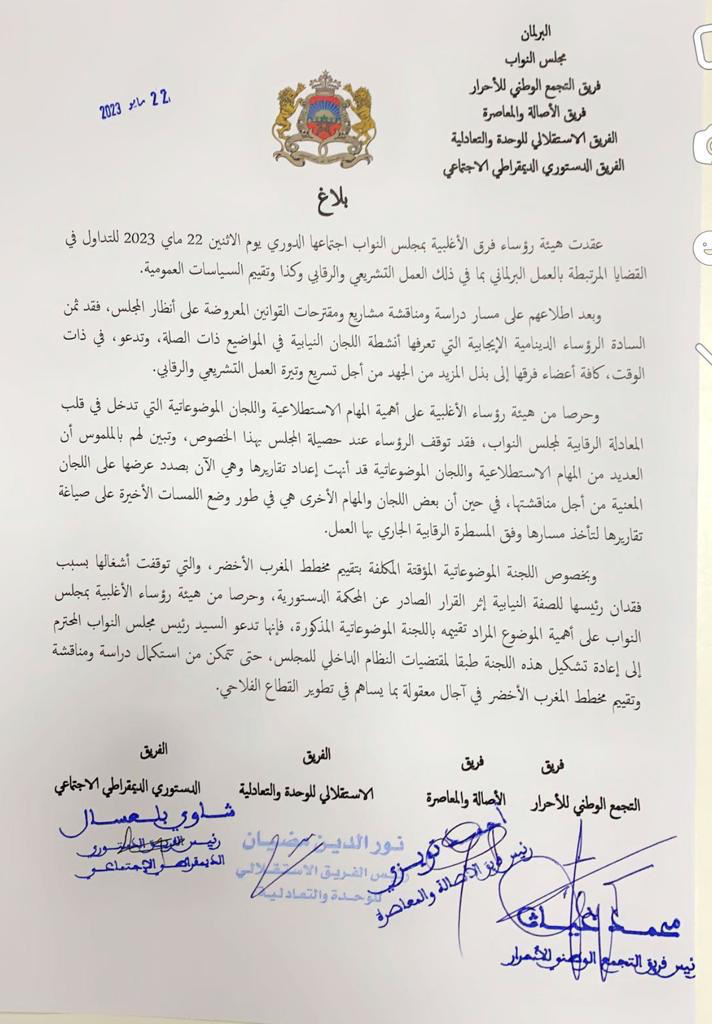 البرلمان
مجلس النواب
فريق التجمع الوطني للأحرار
فريق الأصالة والمعاصرة
الفريق الاستقلالي للوحدة والتعادلية
الفريق الدستوري الديمقراطي الاجتماعي
22 مايو 2023
بلاغ
عقدت هيئة رؤساء فرق الأغلبية بمجلس النواب اجتماعها الدوري يوم الاثنين 22 ماي 2023 للتداول في
القضايا المرتبطة بالعمل البرلماني بما في ذلك العمل التشريعي والرقابي وكذا وتقييم السياسات العمومية.
وبعد اطلاعهم على مسار دراسة ومناقشة مشاريع ومقترحات القوانين المعروضة على أنظار المجلس، فقد ثمن
السادة الرؤساء الدينامية الإيجابية التي تعرفها أنشطة اللجان النيابية في المواضيع ذات الصلة، وتدعو، في ذات
الوقت، كافة أعضاء فرقها إلى بذل المزيد من الجهد من أجل تسريع وتيرة العمل التشريعي والرقابي.
وحرصا من هيئة رؤساء الأغلبية على أهمية المهام الاستطلاعية واللجان الموضوعاتية التي تدخل في قلب
المعادلة الرقابية لمجلس النواب، فقد توقف الرؤساء عند حصيلة المجلس بهذا الخصوص، وتبين لهم بالملموس أن
العديد من المهام الاستطلاعية واللجان الموضوعاتية قد أنهت إعداد تقاريرها وهي الآن بصدد عرضها على اللجان
المعنية من أجل مناقشتها، في حين أن بعض اللجان والمهام الأخرى هي في طور وضع اللمسات الأخيرة على صياغة
تقاريرها لتأخذ مسارها وفق المسطرة الرقابية الجاري بها العمل.
وبخصوص اللجنة الموضوعاتية المؤقتة المكلفة بتقييم مخطط المغرب الأخضر، والتي توقفت أشغالها بسبب
فقدان رئيسها للصفة النيابية إثر القرار الصادر عن المحكمة الدستورية، وحرصا من هيئة رؤساء الأغلبية بمجلس
النواب على أهمية الموضوع المراد تقييمه باللجنة الموضوعاتية المذكورة، فإنها تدعو السيد رئيس مجلس النواب المحترم
إلى إعادة تشكيل هذه اللجنة طبقا لمقتضيات النظام الداخلي للمجلس، حتى تتمكن من استكمال دراسة ومناقشة
وتقييم مخطط المغرب الأخضر في آجال معقولة بما يساهم في تطوير القطاع الفلاحي.
فريق
التجمع الوطني للأحرار
فريق
الأصالة والمعاصرة
الفريق
الاستقلالي للوحدة والتعادلية
الفريق
الدستوري الديمقراطي الاجتماعي
محمد غياث
رئيس فريق التجمع الوطني للأحرار
احمد تويزي
رئيس فريق الأصالة والمعاصرة
نور الدين مضيان
رئيس الفريق الاستقلالي
للوحدة والتعادلية
شاوي بلعسال
رئيس الفريق الدستوري
الديمقراطي الإجتماعي